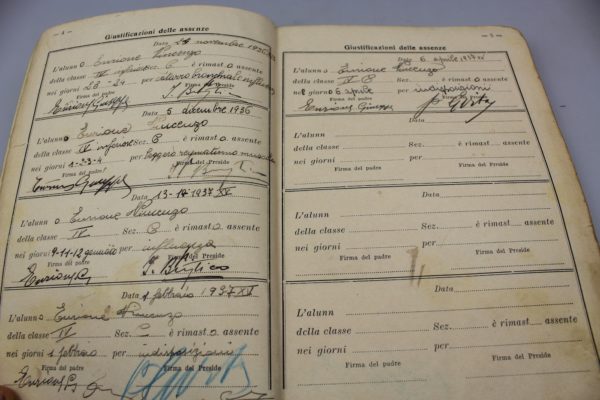 — 4 —
Giustificazioni delle assenze
Data 24 novembre 1936
L'alunno Enrione Vincenzo
della classe IV inferiore Sez. C è rimasto assente
nei giorni 23-24 per catarro bronchiale
Firma del padre Firma del Preside
Enrione Giuseppe
Data 5 dicembre 1936
L'alunno Enrione Vincenzo
della classe IV inferiore Sez. C è rimasto assente
nei giorni 1-2-3-4 per leggero reumatismo
Firma del padre Firma del Preside
Enrione Giuseppe
Data 13- 1937 XV
L'alunno Enrione Vincenzo
della classe IV Sez. C è rimasto assente
nei giorni 9-11-12 gennaio per influenza
Firma del padre Firma del Preside
Enrione G
Data 1 febbraio 1937 XV
L'alunno Enrione Vincenzo
della classe IV Sez. C è rimasto assente
nei giorni 1 febbraio per indisposizioni
Firma del padre Firma del Preside
Enrione G
— 5 —
Giustificazioni delle assenze
Data 6 aprile 1937 XV
L'alunno Enrione Vincenzo
della classe IV C Sez. è rimasto assente
nei giorni 6 aprile per indisposizioni
Firma del padre Firma del Preside
Enrione Giuseppe
Data
L'alunn
della classe Sez. è rimast assente
nei giorni per
Firma del padre Firma del Preside
Data
L'alunn
della classe Sez. è rimast assente
nei giorni per
Firma del padre Firma del Preside
Data
L'alunn
della classe Sez. è rimast assente
nei giorni per
Firma del padre Firma del Preside